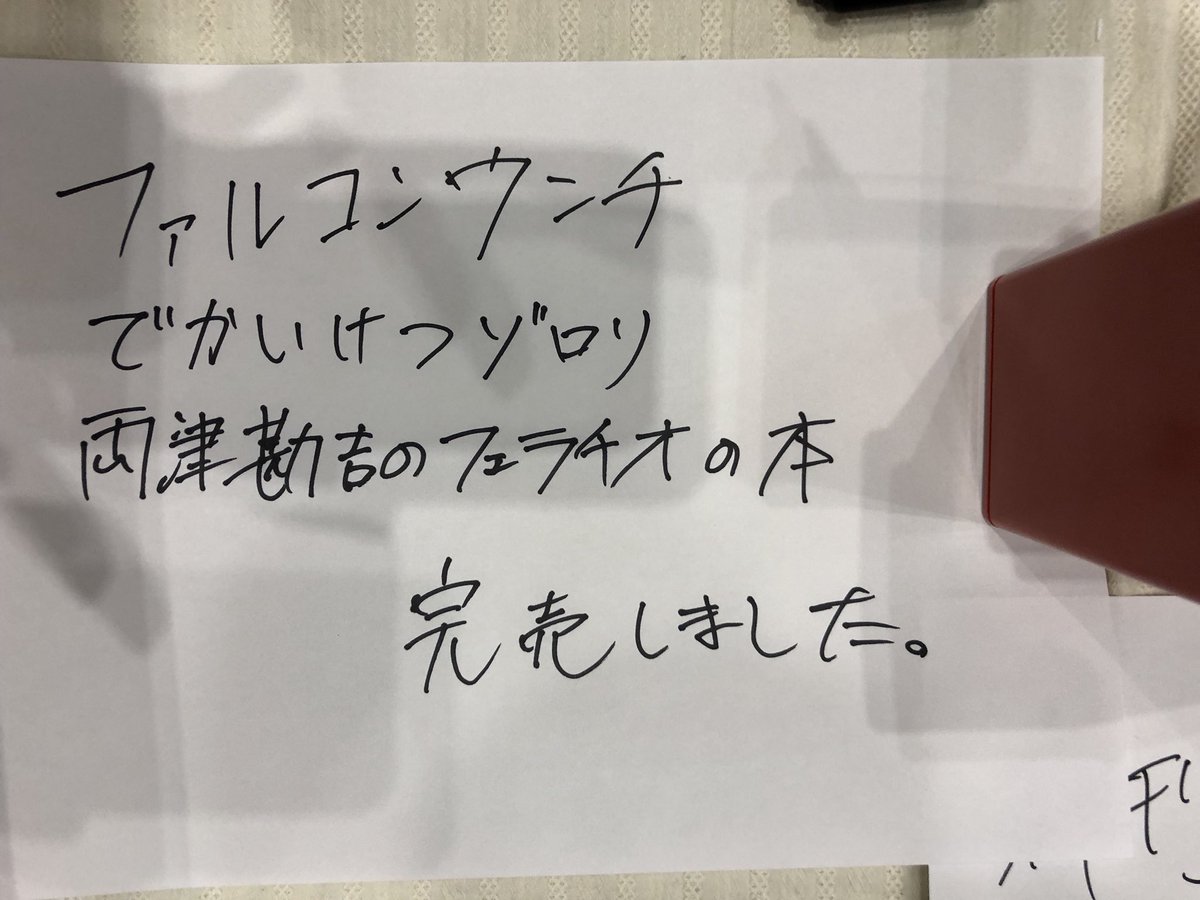 ファルコンウンチ
でかいけつゾロリ
両津勘吉のフェラチオの本
完売しました。